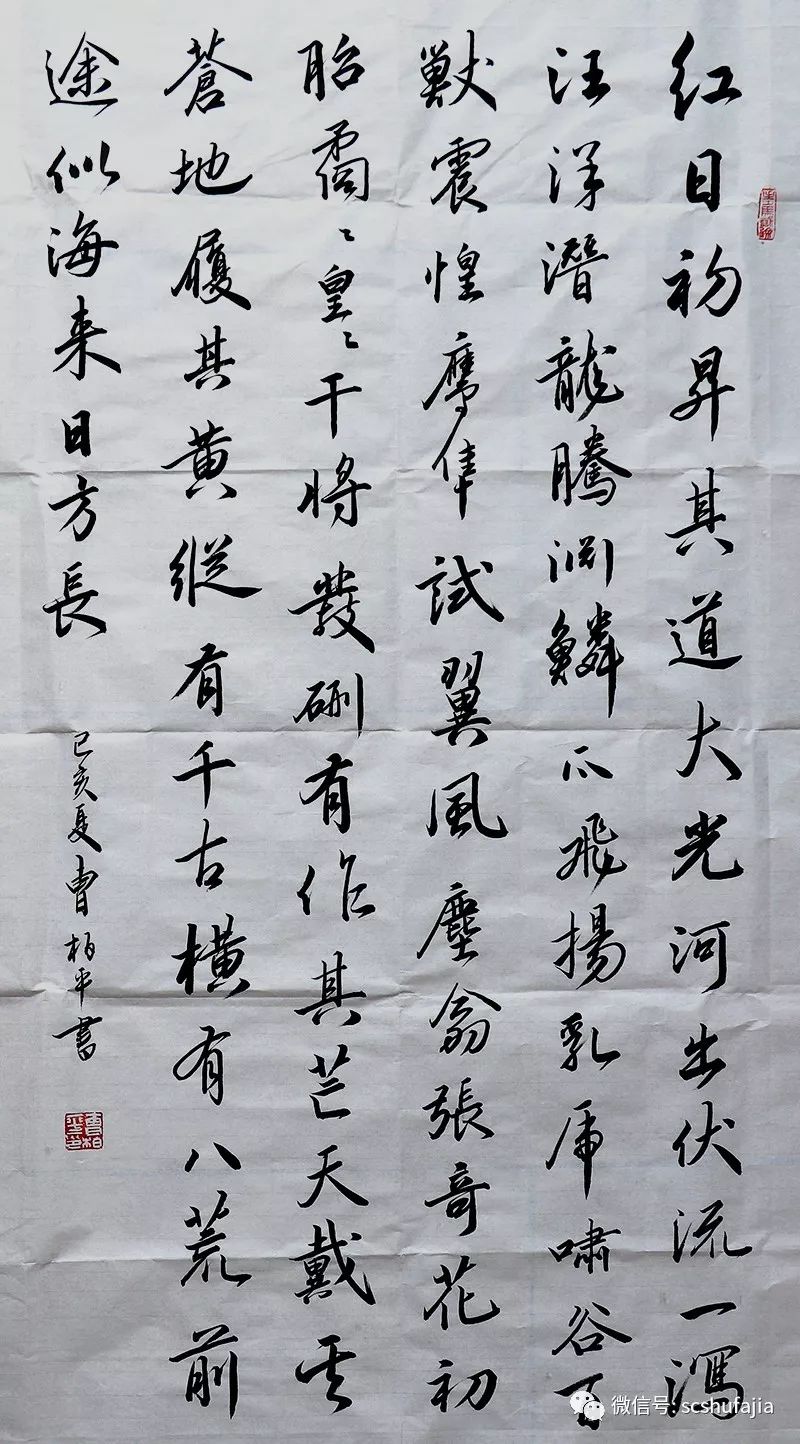 红日初昇其道大光河出伏流一瀉
汪洋潛龍騰渊鱗爪飛揚乳虎嘯谷百
獸震惶鷹隼試翼風塵翕張奇花初
胎矞〻皇〻干將發硎有作其芒天戴其
蒼地履其黄縱有千古横有八荒前
途似海来日方長
己亥夏曹柏平書
曹柏平印
微信号: scshufajia